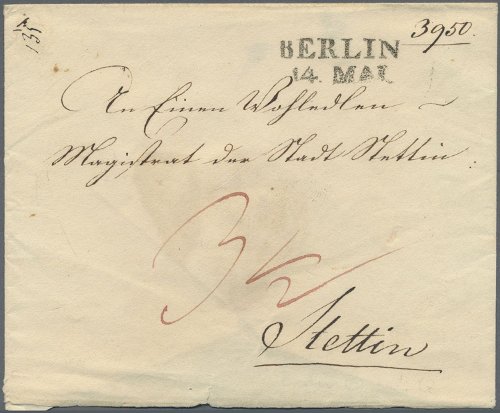 3950.
BERLIN
14. MAI
An Einen Wohledlen
Magistrat der Stadt Stettin
3½
Stettin